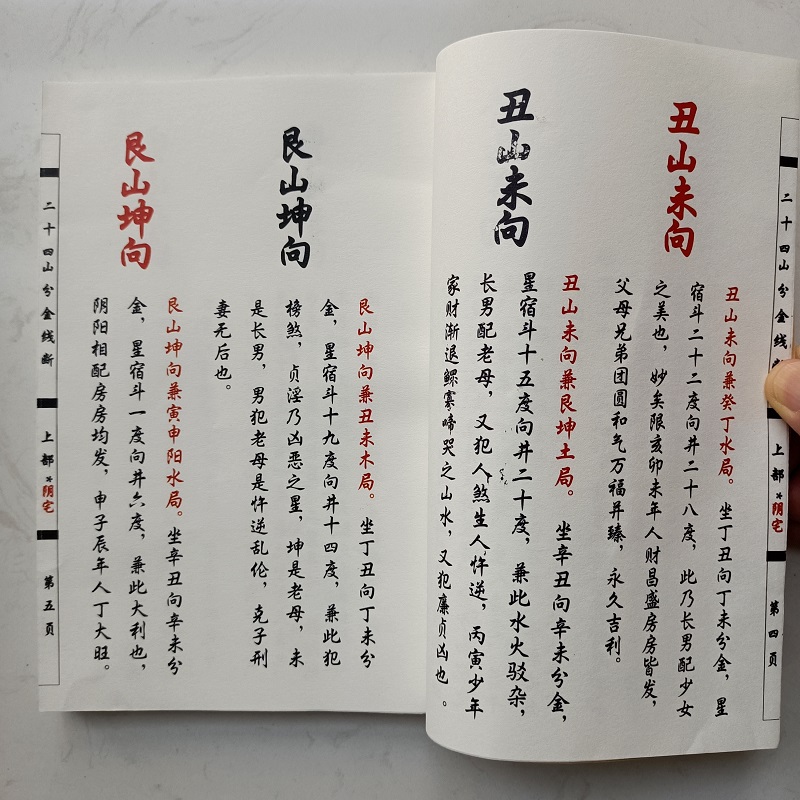 二十四山分金线断
上部*阴宅
第四页
丑山未向
丑山未向兼癸丁水局。坐丁丑向丁未分金，星
宿斗二十二度向井二十八度，此乃长男配少女
之美也，妙矣限亥卯未年人财昌盛房房皆发，
父母兄弟团圆和气万福并臻，永久吉利。
丑山未向
丑山未向兼艮坤土局。坐辛丑向辛未分金，
星宿斗十五度向井二十度，兼此水火驳杂，
长男配老母，又犯人煞生人忤逆，丙寅少年
家财渐退鳏寡啼哭之山水，又犯廉贞凶也。
艮山坤向
艮山坤向兼丑未木局。坐丁丑向丁未分
金，星宿斗十九度向井十四度，兼此犯
榜煞，贞淫乃凶恶之星，坤是老母，未
是长男，男犯老母是忤逆乱伦，克子刑
妻无后也。
艮山坤向
艮山坤向兼寅申阳水局。坐辛丑向辛未分
金，星宿斗一度向井六度，兼此大利也，
阴阳相配房房均发，申子辰年人丁大旺。
二十四山分金线断
上部*阴宅
第五页